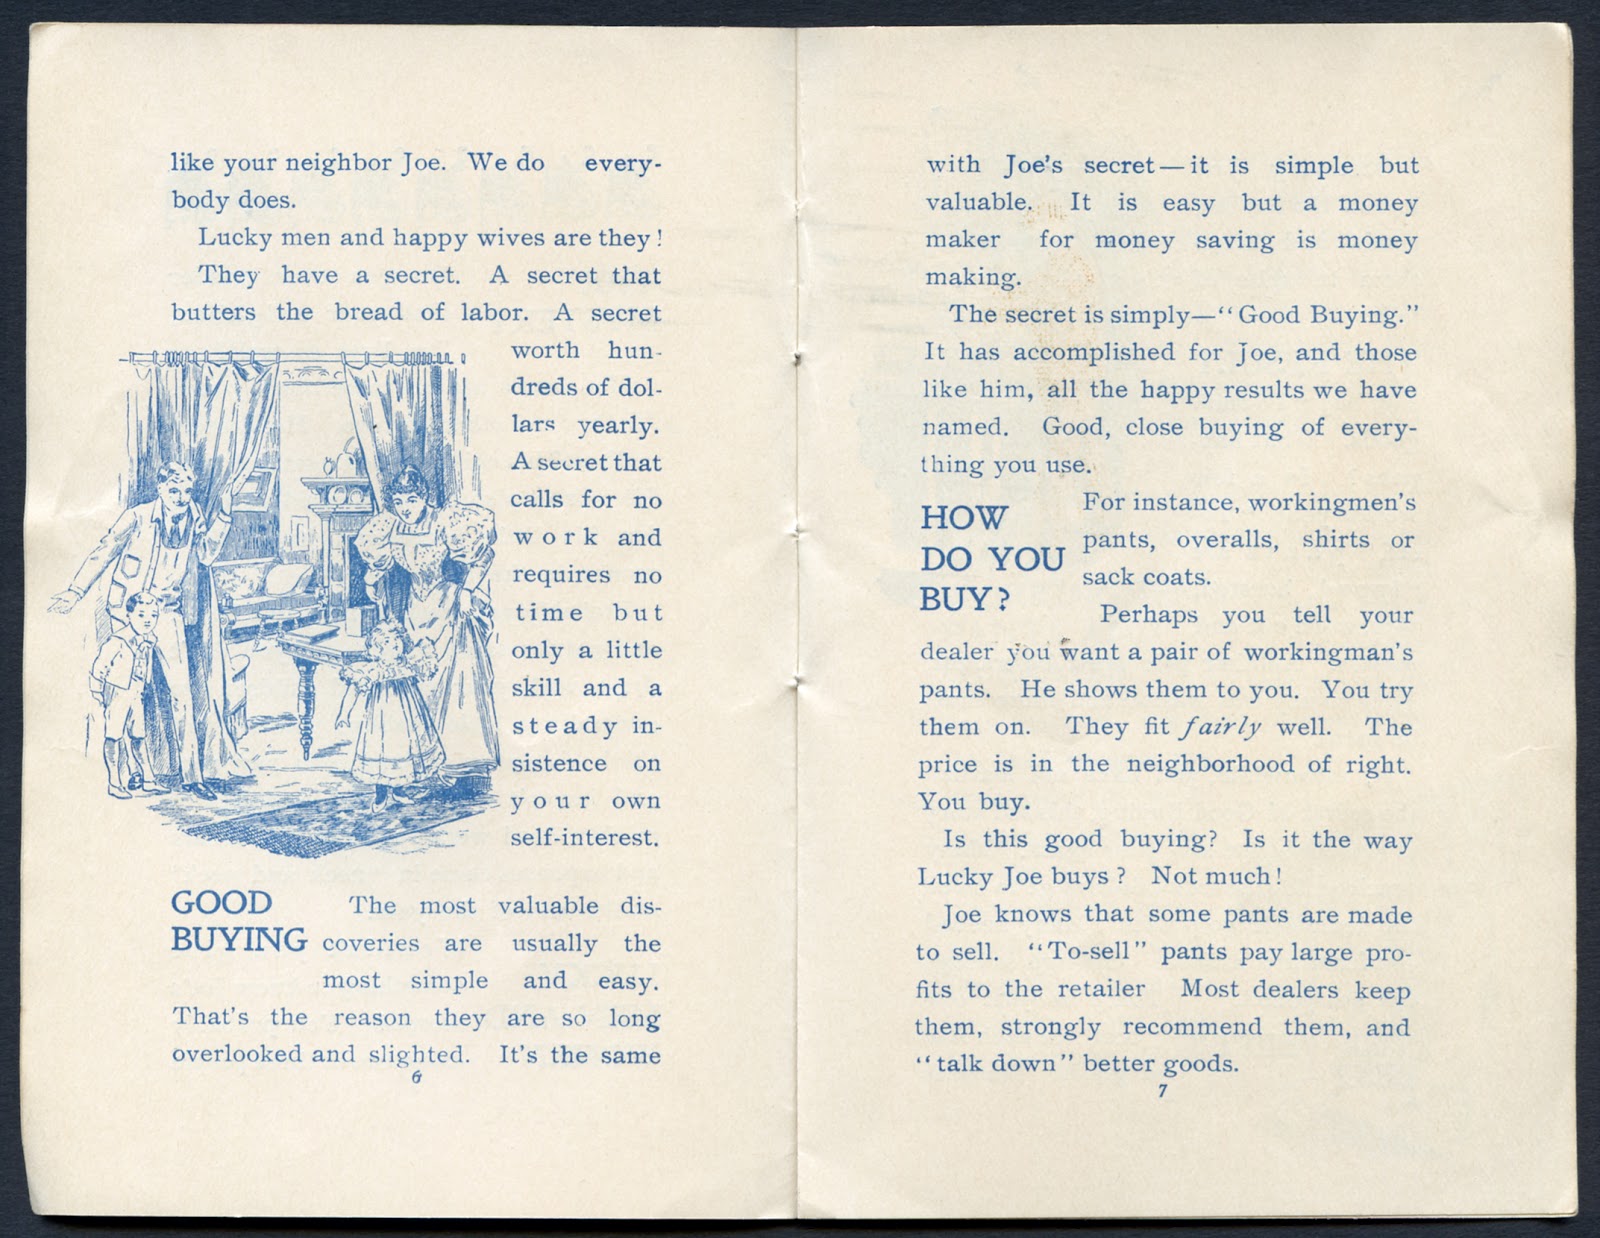 like your neighbor Joe. We do every-
body does.
Lucky men and happy wives are they!
They have a secret. A secret that
butters the bread of labor. A secret
worth hun-
dreds of dol-
lars yearly.
A secret that
calls for no
work and
requires no
time but
only a little
skill and a
steady in-
sistence on
your own
self-interest.
GOOD
BUYING
The most valuable dis-
coveries are usually the
most simple and easy.
That's the reason they are so long
overlooked and slighted. It's the same
6
with Joe's secret—it is simple but
valuable. It is easy but a money
maker for money saving is money
making.
The secret is simply—"Good Buying."
It has accomplished for Joe, and those
like him, all the happy results we have
named. Good, close buying of every-
thing you use.
HOW
DO YOU
BUY?
For instance, workingmen's
pants, overalls, shirts or
sack coats.
Perhaps you tell your
dealer you want a pair of workingman's
pants. He shows them to you. You try
them on. They fit fairly well. The
price is in the neighborhood of right.
You buy.
Is this good buying? Is it the way
Lucky Joe buys? Not much!
Joe knows that some pants are made
to sell. "To-sell" pants pay large pro-
fits to the retailer Most dealers keep
them, strongly recommend them, and
"talk down" better goods.
7